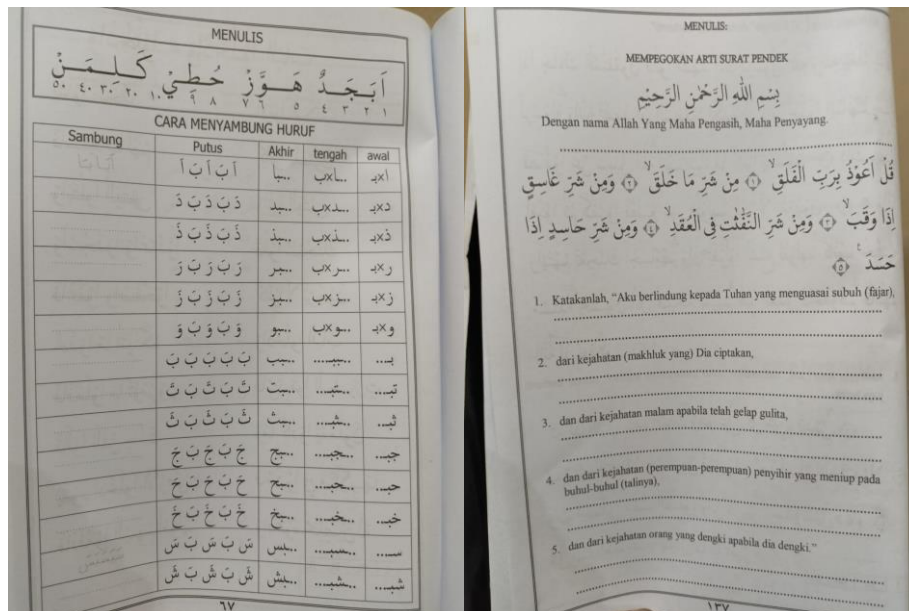 MENULIS
أَبَجَدٌ هَـوَّزٌ حُطِيْ كَـلِـمَـنْ
١ ٢ ٣ ٤ ٥ ٦ ٧ ٨ ٩ ١٠ ٢٠ ٣٠ ٤٠ ٥٠
CARA MENYAMBUNG HURUF
Sambung Putus Akhir tengah awal
أَ بَ أَ بَ أَ ...ـبا ...ـا×ب ا×بـ
دَ بَ دَ بَ دَ ...ـبد ...ـد×ب د×بـ
ذَ بَ ذَ بَ ذَ ...ـبذ ...ـذ×ب ذ×بـ
رَ بَ رَ بَ رَ ...ـبر ...ـر×ب ر×بـ
زَ بَ زَ بَ زَ ...ـبز ...ـز×ب ز×بـ
وَ بَ وَ بَ وَ ...ـبو ...ـو×ب و×بـ
بَ بَ بَ بَ بَ ...ـبب ...ـببـ... بـ...
تَ بَ تَ بَ تَ ...ـبت ...ـتبـ... تبـ...
ثَ بَ ثَ بَ ثَ ...ـبث ...ـثبـ... ثبـ...
جَ بَ جَ بَ جَ ...ـبج ...ـجبـ... جبـ...
حَ بَ حَ بَ حَ ...ـبح ...ـحبـ... حبـ...
خَ بَ خَ بَ خَ ...ـبخ ...ـخبـ... خبـ...
سَ بَ سَ بَ سَ ...ـبس ...ـسبـ... سبـ...
شَ بَ شَ بَ شَ ...ـبش ...ـشبـ... شبـ...
٦٧
MENULIS:
MEMPEGOKAN ARTI SURAT PENDEK
بِسْمِ اللّٰهِ الرَّحْمٰنِ الرَّحِيْمِ
Dengan nama Allah Yang Maha Pengasih, Maha Penyayang.
قُلْ اَعُوْذُ بِرَبِّ الْفَلَقِۙ ۝١ مِنْ شَرِّ مَا خَلَقَۙ ۝٢ وَمِنْ شَرِّ غَاسِقٍ
اِذَا وَقَبَۙ ۝٣ وَمِنْ شَرِّ النَّفّٰثٰتِ فِى الْعُقَدِۙ ۝٤ وَمِنْ شَرِّ حَاسِدٍ اِذَا
حَسَدَ ۝٥
1. Katakanlah, “Aku berlindung kepada Tuhan yang menguasai subuh (fajar),
2. dari kejahatan (makhluk yang) Dia ciptakan,
3. dan dari kejahatan malam apabila telah gelap gulita,
4. dan dari kejahatan (perempuan-perempuan) penyihir yang meniup pada
buhul-buhul (talinya),
5. dan dari kejahatan orang yang dengki apabila dia dengki.”
١٣٧